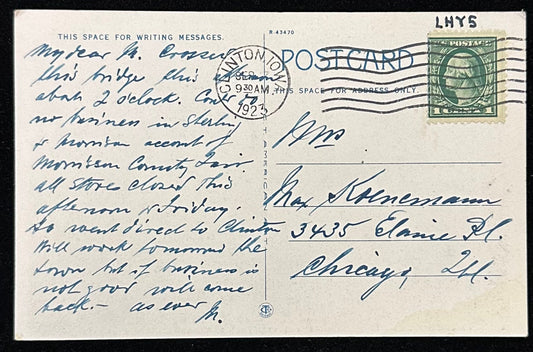 LHYS
THIS SPACE FOR WRITING MESSAGES.
R-43470
POST CARD
THIS SPACE FOR ADDRESS ONLY
CLINTON, IOWA
SEP
9 30 AM
1923
My dear M. Crossed
this bridge this afternoon
about 2 o'clock.
no business in Sterling
& Morrison account of
Morrison County Fair
all stores closed this
afternoon & Friday.
so went direct to Clinton
Will work tomorrow the
town but if business is
not good will come
back. - as ever
M.
Mrs
Max Koenemann
3435 Elaine Pl.
Chicago, Ill.